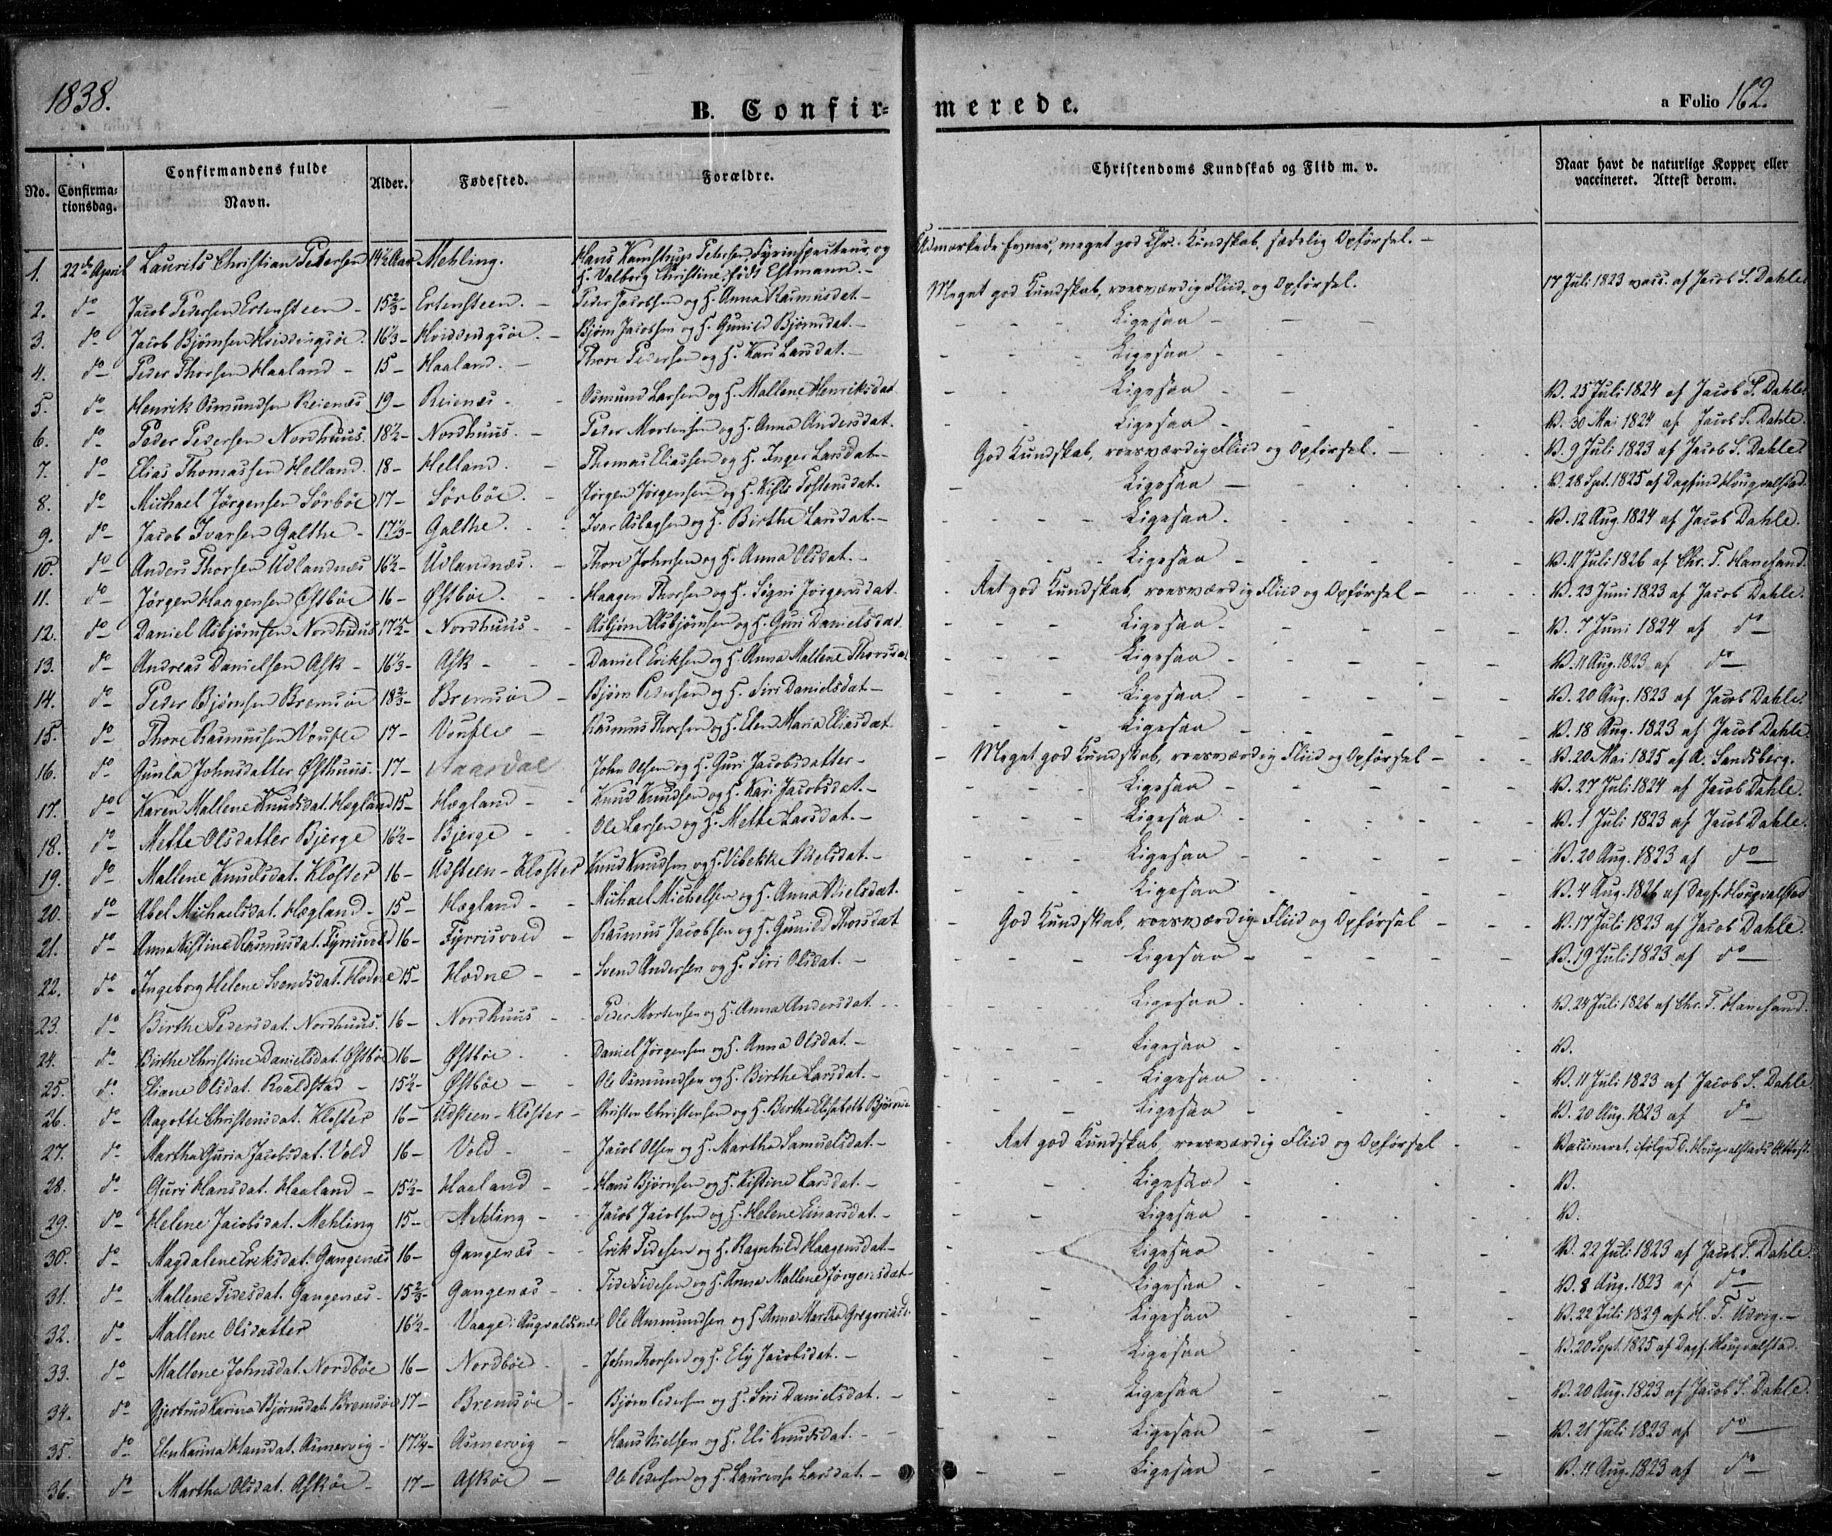 1838.
B. Confirmerede.
a Folio 162.
No. | Confirmationsdag. | Confirmandens fulde Navn. | Alder. | Fødested. | Forældre. | Christendoms Kundskab og Flid m. v. | Naar havt de naturlige Kopper eller vaccineret. Attest derom.
1. 22de April Laurits Christian Petersen 14½ Aar Mehling. Hans Kamstrup Petersen, Fyrinspecteur, og H. Valborg Christine, født Estmann. - Udmærkede Evner, meget god Chr. Kundskab, sædelig Opførsel. - 17 Juli 1823 vacc. af Jacob S. Dahle
2. do Jacob Pedersen Ertensteen - 15⅔ - Ertensteen. - Peder Jacobsen og H. Anna Rasmusdat. - Meget god Kundskab, roesværdig Fliid, og Opførsel.
3. do Jacob Bjørnsen Hvidingsøe. 16⅓ - Hvidingsøe. - Bjørn Jacobsen og H. Gunild Bjørnsdat. - Ligesaa -
4. do Peder Thorsen Haaland - 15 - Haaland. - Thore Pedersen og H. Kari Larsdat. - Ligesaa -
5. do Henrik Osmundsen Reienæs 19 - Reienæs - Osmund Larsen og H. Mallene Henriksdat. Ligesaa - V. 25 Juli 1824 af Jacob S. Dahle.
6. do Peder Pedersen Nordhuus. 18½ - Nordhuus. - Peder Mortensen og H. Anna Andersdat. Ligesaa - V. 30 Mai 1824 af Jacob S. Dahle.
7. do Elias Thomassen Helland. 18 - Helland. - Thomas Eliassen og H. Inger Larsdat. - God Kundskab, roesværdig Fliid og Opførsel. - V. 9 Juli 1823 af Jacob S. Dahle
8. do Michael Jørgensen Sørbøe 17 - Sørbøe. - Jørgen Jørgensen og H. Kisti Tostensdat. - Ligesaa - V. 28 Spt. 1825 af Dagfind Hougvalstad.
9. do Jacob Ivarsen Galthe - 17⅓ - Galthe. Ivar Aslagsen og H. Birthe Larsdat. - Ligesaa. V. 12 Aug. 1824 af Jacob Dahle.
10. do Anders Thorsen Udlandnæs 16½ - Udlandnæs. - Thore Johnsen og H. Anna Olsdat. - Ligesaa - V. 11 Juli 1826 af Chr. T. Hanesand.
11. do Jørgen Haagensen Østbøe - 16 - Østbøe. - Haagen Thorsen og H. Signi Jørgensdat. - Ret god Kundskab, roesværdig Fliid og Opførsel - V. 23 Juni 1823 af Jacob Dahle.
12. do Daniel Asbjørnsen Nordhuus Nordhuus - Asbjørn Asbjørnsen og H. Guri Danielsdat. Ligesaa. V. 7 Juni 1824 af do -
13. do Andreas Danielsen Ask - 16⅓ - Ask - Daniel Eriksen og H. Anna Mallene Thorsdat Ligesaa - V. 11 Aug. 1823 af do -
14. do Peder Bjørnsen Bremsøe 18⅔ - Bremsøe - Bjørn Pedersen og H. Siri Danielsdat - Ligesaa. V. 20 Aug. 1823 af Jacob Dahle.
15. do Thore Rasmussen Voustle 17 - Voustle - Rasmus Thorsen og H. Elen Maria Eliasdat - Ligesaa - V. 18 Aug. 1823 af Jacob Dahle
16. do Gunla Johnsdatter Østhuus. 17 - Aardal John Olsen og H. Guri Jacobsdatter - Meget god Kundskab, roesværdig Fliid og Opførsel - V. 20 Mai 1825 af A. Sandsberg.
17. do Karen Mallene Knudsdat. Hægland 15 - Hægland - Knud Knudsen og H. Kari Jacobsdat. - Ligesaa - V. 27 Juli 1824 af Jacob Dahle.
18. do Mette Olsdatter Bjerge 16½ - Bjerge - Ole Larsen og H. Mette Larsdat. - Ligesaa - V. 1 Juli 1823 af Jacob Dahle.
19. do Mallene Knudsdat. Kloster 16 - Udsteen-Kloster Knud Knudsen og H. Vibekke Nielsdat. - Ligesaa - V. 20 Aug. 1823 af do -
20. do Abel Michaelsdat. Hægland. 15 - Hægland - Michael Michelsen og H. Anna Nielsdat. Ligesaa - V. 4 Aug. 1826 af Dagf. Hougvalstad
21. do Anna Kistine Rasmusdat. Fyrisved 16 - Fyrrisved - Rasmus Jacobsen og H. Gunild Thorsdat God Kundskab, roesværdig Fliid og Opførsel - V. 17 Juli 1823 af Jacob Dahle.
22. do Ingeborg Helene Svendsdat. Hodne 15 - Hodne - Svend Andersen og H. Siri Olsdat. - Ligesaa - V. 19 Juli 1823 af do -
23. do Birthe Pedersdat. Nordhuus. 16 - Nordhuus - Peder Mortensen og H. Anna Andersdat. Ligesaa. V. 24 Juli 1826 af Chr. T. Hanesand.
24. do Birthe Christine Danielsdat. Østbøe 16 - Østbøe. Daniel Jørgensen og H. Anna Olsdat. - Ligesaa - V.
25. do. Eliane Olsdat. Roaldstad - 15½ - Østbøe - Ole Osmundsen og H. Birthe Larsdat. - Ligesaa - V. 11 Juli 1823 af Jacob S. Dahle
26. do Aagotte Christensdat. Kloster 16 - Udsteen-Kloster - Christen Christensen og H. Berthe Elisabeth Bjørnsd Ligesaa - V. 20 Aug. 1823 af do -
27. do Martha Guria Jacobsdat. Vold 16 - Vold - Jacob Olsen og H. Martha Samuelsdat. - Ret god Kundskab, roesværdig Fliid og Opførsel - Vaccineret, ifølge D. Hougvalstads Attest.
28. do Guri Hansdat. Haaland - 15½ - Haaland - Hans Bjørnsen og H. Kistine Larsdat. - Ligesaa - V.
29. do Helene Jacobsdat. Mehling 15 - Mehling - Jacob Jacobsen og H. Helene Einarsdat. - Ligesaa - V.
30. do Magdalene Eriksdat. Gangenæs 16 - Gangenæs - Erik Tidesen og H. Ragnhild Haagensdat - Ligesaa V. 22 Juli 1823 af Jacob S. Dahle
31. do Mallene Tidesdat. Gangenæs - 15⅔ - Gangenæs - Tide Tidesen og H. Anna Mallene Jørgensdat - Ligesaa - V. 8 Aug. 1823 af do -
32. do Mallene Olsdatter 16½ - Vaage: Augvaldsnæs Ole Asmundsen og H. Anna Martha Gregoriusd. Ligesaa - V. 22 Juli 1829 af H. T. Udvig. -
33. do Mallene Johnsdat. Nordbøe 16 - Nordbøe - John Thorsen og H. Ely Jacobsdat. - Ligesaa - V. 20 Sept. 1825 af Dagf. Hougvalstad.
34. do Gjertrud Karina Bjørnsdat. Bremsøe 17 - Bremsøe - Bjørn Pedersen og H. Siri Danielsdat. - Ligesaa - V. 20 Aug. 1823 af Jacob S. Dahle.
35. do Elen Karina Hansdat. Asmervig - Asmervig - Hans Nielsen og H. Eli Knudsdat. - Ligesaa - V. 21 Juli 1823 af do -
36. do Martha Olsdat. Askøe - 17 - Askøe - Ole Pedersen og H. Laurense Larsdat. - Ligesaa - V. 11 Aug. 1823 af do -